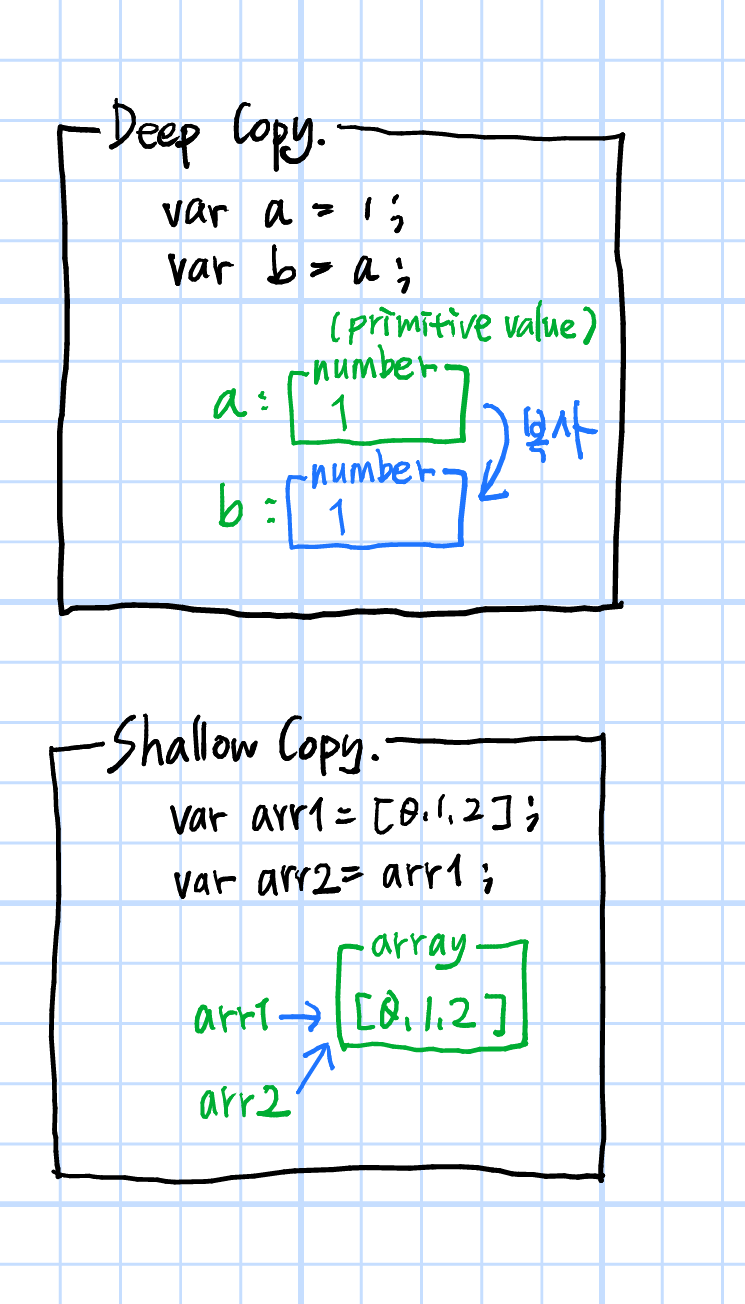 Deep Copy.
var a = 1;
var b = a;
(primitive value)
number
a: 1
복사
number
b: 1
Shallow Copy.
var arr1 = [0,1,2];
var arr2 = arr1;
array
arr1 → [0,1,2]
arr2